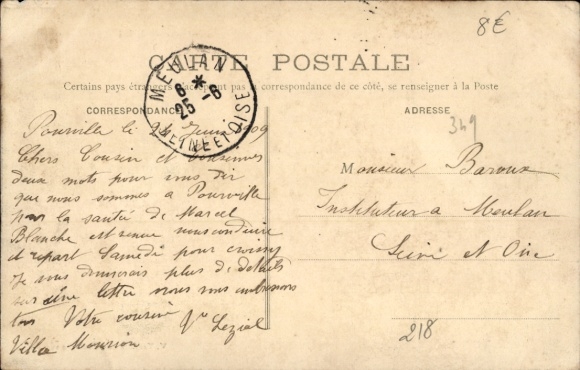 8€
CARTE POSTALE
Certains pays étrangers n'acceptant pas la correspondance de ce côté, se renseigner à la Poste
CORRESPONDANCE
ADRESSE
MEULAN
8 *
25 -6
SEINE ET OISE
349
Pourville le 24 Juin 1909
Chers Cousin et Cousines
deux mots pour vous dir
que nous sommes a Pourville
pour la santé de Marcel
Blanche est venue nous conduire
et repart Samedi pour
Je vous donnerais plus de details
sur une lettre nous vous embrassons
tous Votre cousine
Vve
Villa
Monsieur Baroux
Instituteur a Meulan
Seine et Oise
218